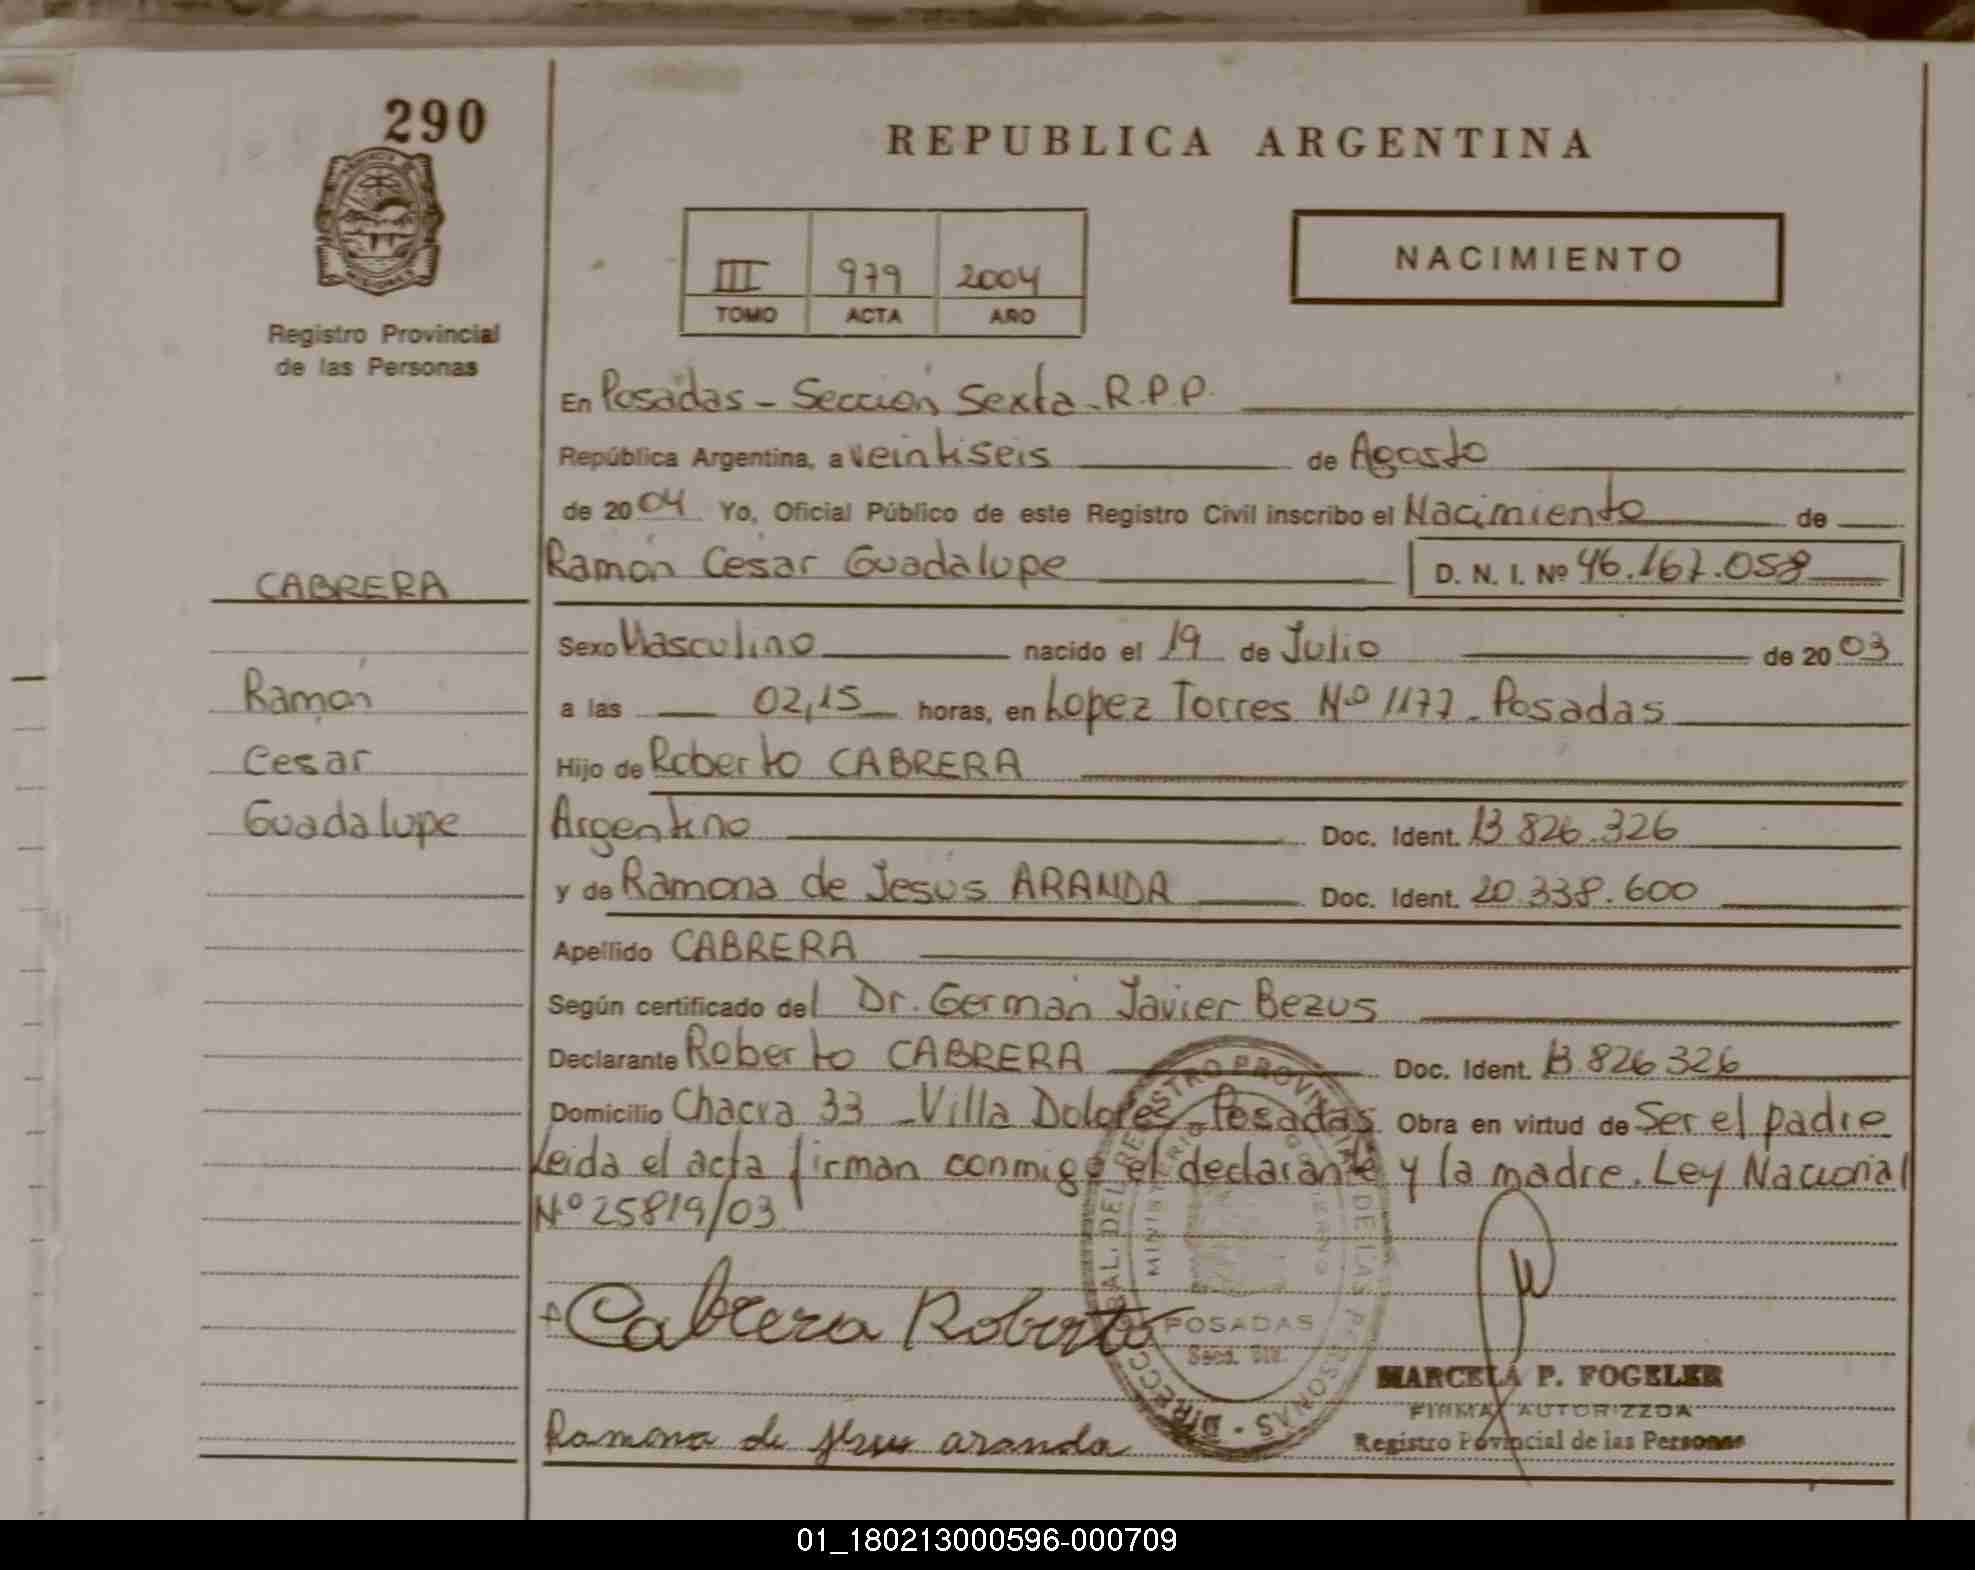 290
REPUBLICA ARGENTINA
NACIMIENTO
III 979 2004
TOMO ACTA AÑO
Registro Provincial
de las Personas
En Posadas - Sección Sexta - R.P.P.
República Argentina, a veintiseis de Agosto
de 2004 Yo, Oficial Público de este Registro Civil inscribo el Nacimiento de
CABRERA
Ramón César Guadalupe D. N. I. Nº 46.167.058
Sexo Masculino nacido el 19 de Julio de 2003
Ramón
a las 02,15 horas, en Lopez Torres Nº 1177 - Posadas
Cesar
Hijo de Roberto CABRERA
Guadalupe
Argentino Doc. Ident. 13 826.326
y de Ramona de Jesús ARANDA Doc. Ident. 20.338.600
Apellido CABRERA
Según certificado del Dr. Germán Javier Bezus
Declarante Roberto CABRERA Doc. Ident. 13 826 326
Domicilio Chacra 33 - Villa Dolores - Posadas Obra en virtud de Ser el padre
Leida el acta firman conmigo el declarante y la madre. Ley Nacional
Nº 25819/03
Cabrera Roberto
POSADAS
MARCELA P. FOGELER
FIRMA AUTORIZZDA
Registro Povincial de las Personas
Ramona de Jesus aranda
01_180213000596-000709